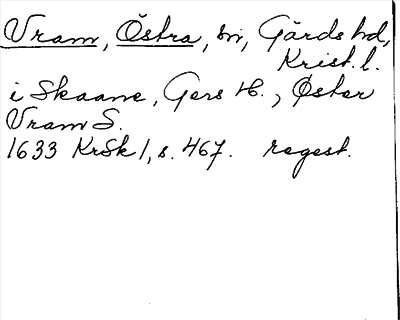 Vram, Östra, sn, Gärds hd,
Krist. l.
i Skaane, Gers H., Øster
Vram S.
1633 KrSk 1, s. 467. regest.